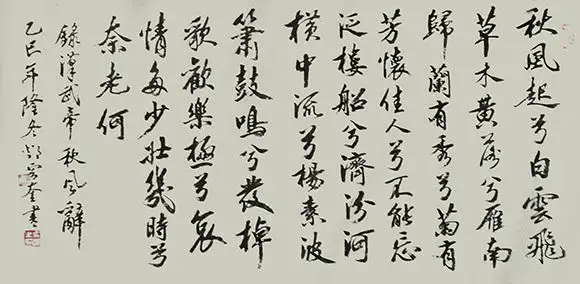 秋風起兮白雲飛
草木黃落兮雁南
歸蘭有秀兮菊有
芳懷佳人兮不能忘
泛樓船兮濟汾河
橫中流兮楊素波
簫鼓鳴兮發棹
歌歡樂極兮哀
情多少壯幾時兮
奈老何
錄漢武帝秋風辭
乙巳年隆冬 奎書